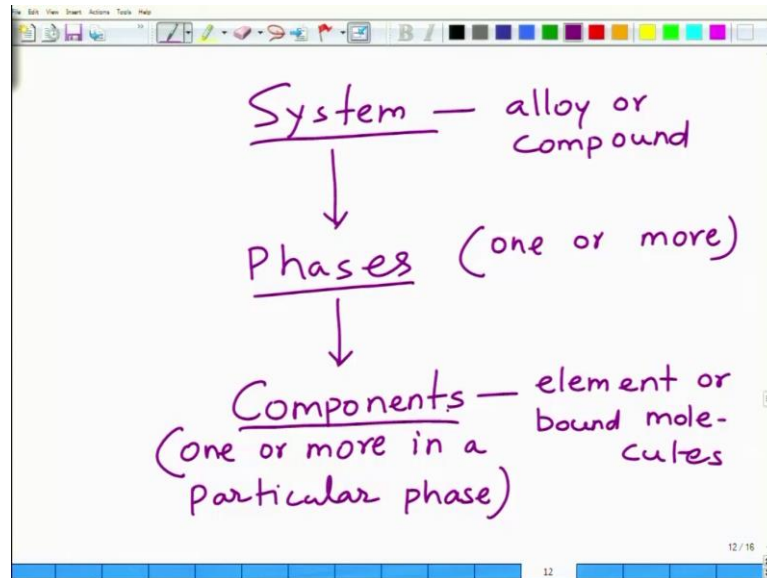 File Edit View Insert Actions Tools Help
B I
System — alloy or
compound
Phases (one or more)
Components — element or
bound mole-
cules
(one or more in a
particular phase)
12 / 16
12